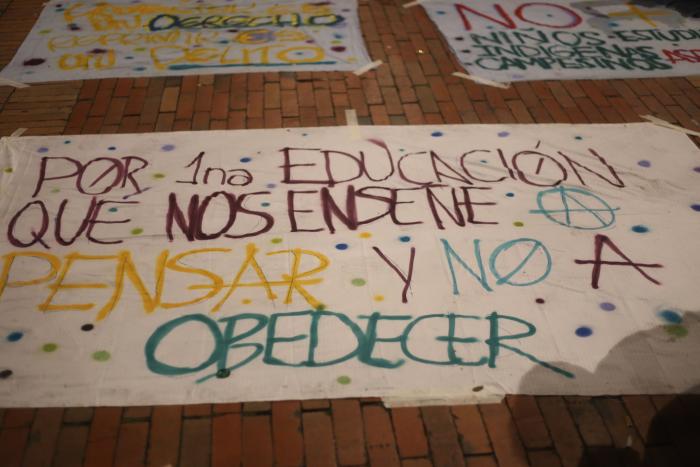 DERECHO
DELITO
NO
NIÑOS ESTUDI
INDIGENAS
CAMPESINOS
POR 1na EDUCACIÓN
QUE NOS ENSEÑE A
PENSAR Y NO A
OBEDECER